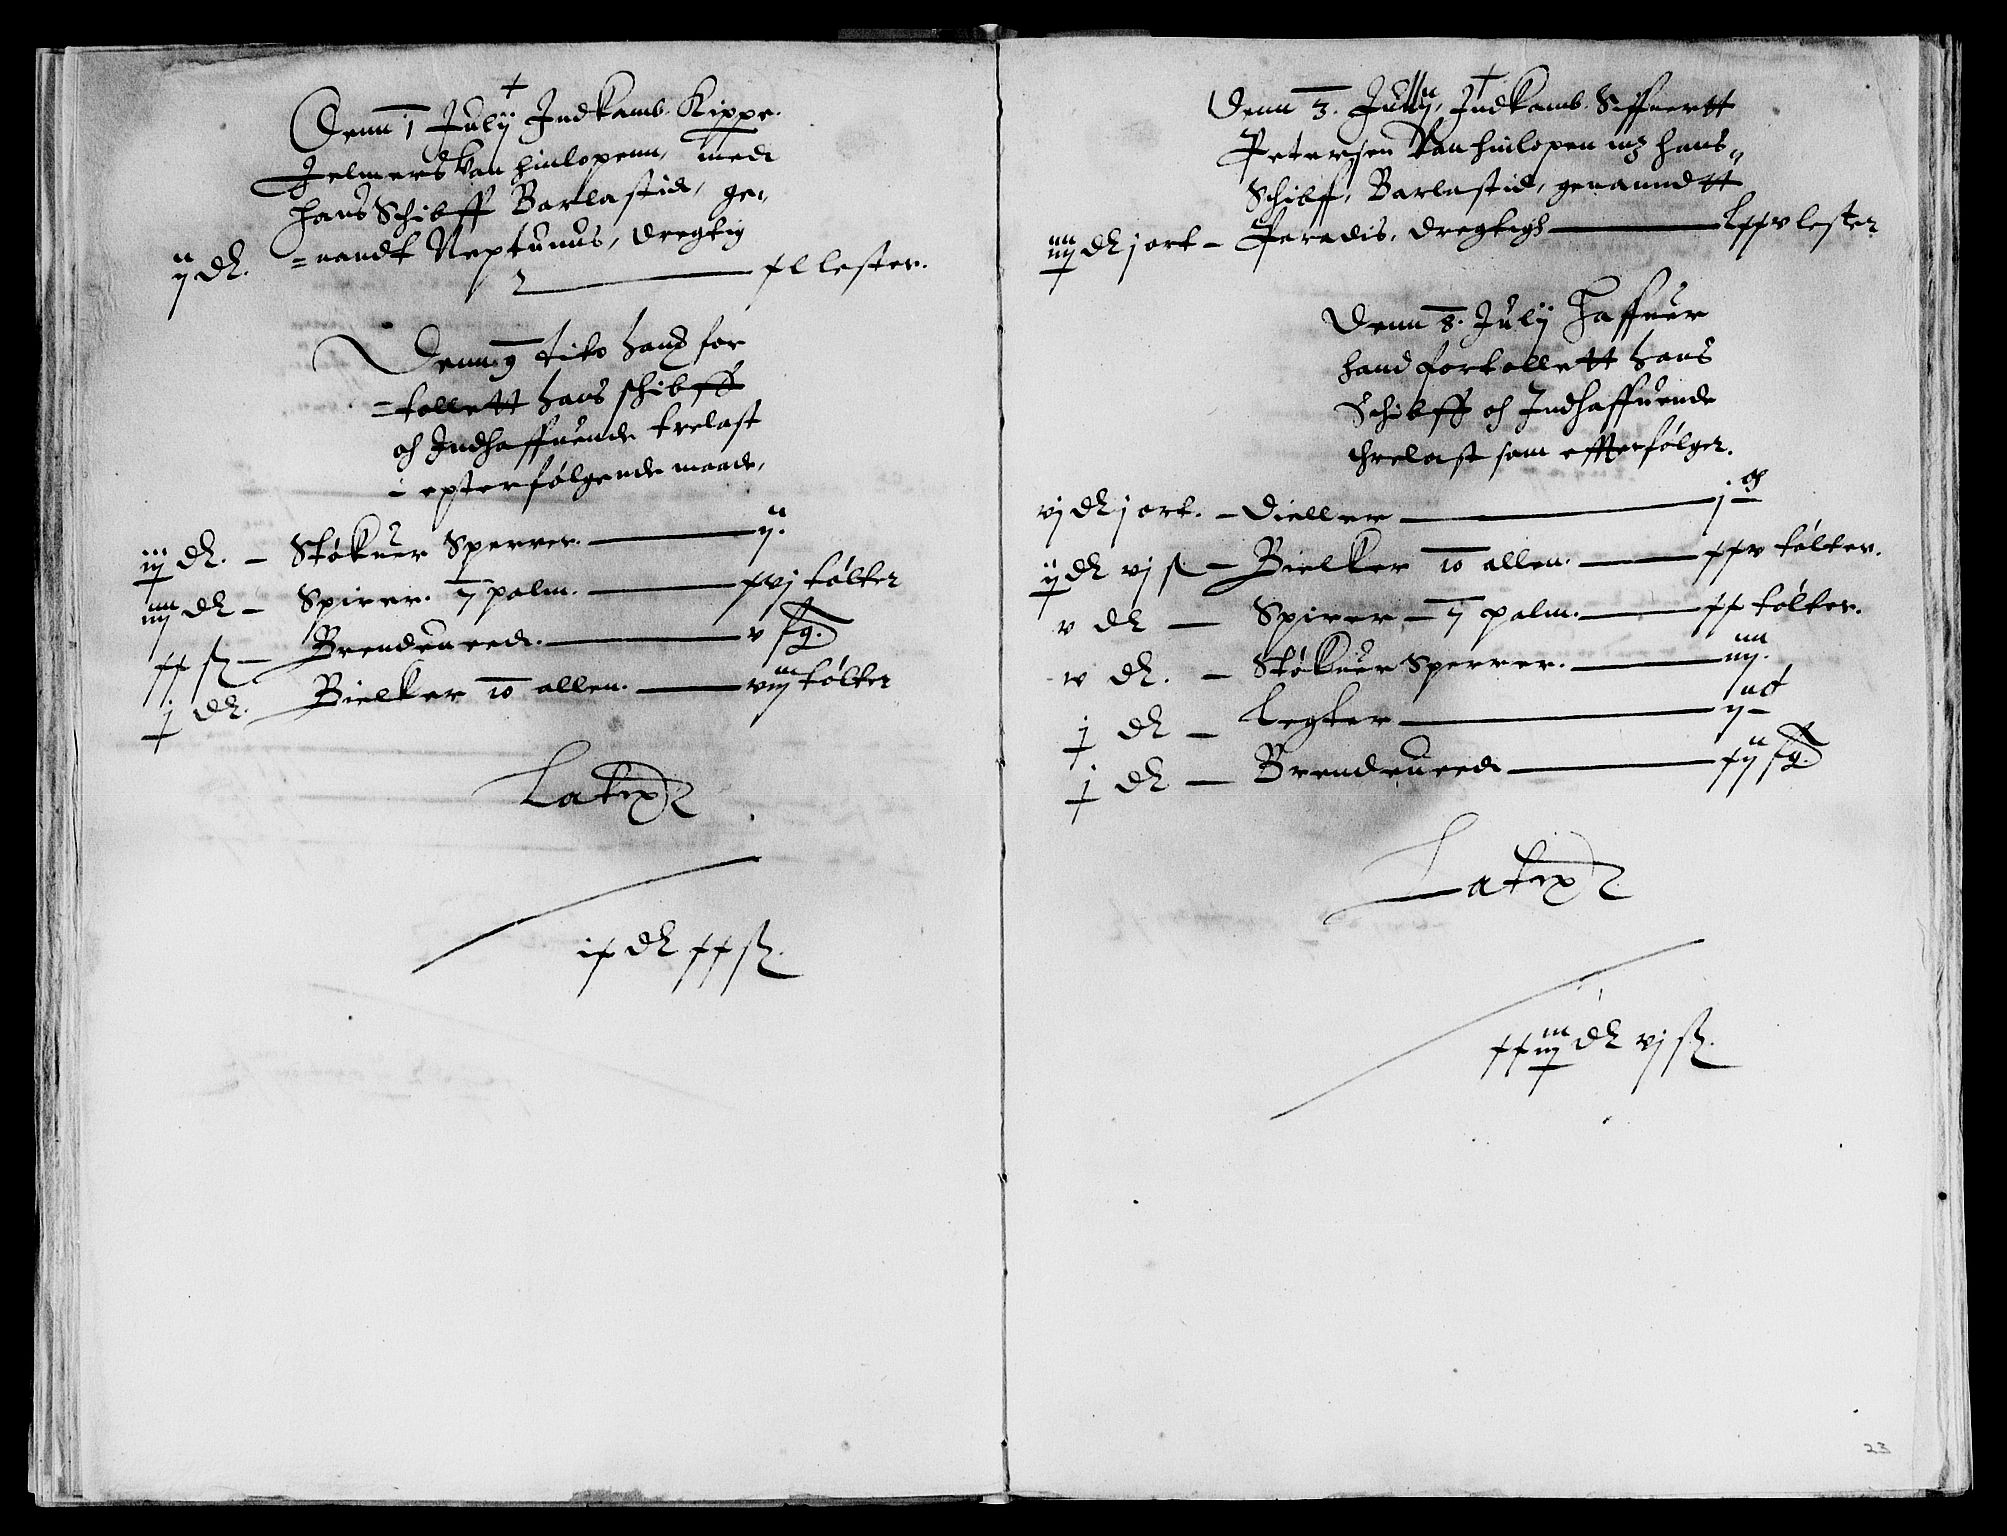 Denn 1 Julij Indkamb. Kippe
Jelmers Van hinlopenn, med
hans Schibff Barlastid, ge,
ij dl. =nandt Neptunus, dregtig
xl lester.
Denn 9 dito hans for
=tollett hans schibff
och Indhaffuende trelast
i epterfølgende maade,
iij dl. – Støkuer Sperrer. ij.
iiij dl – Spirer. 7 palm. xvj tølter
xx ß – Brendeueed. v fg.
j dl. Bielker 10 allen. viij tølter
Latus
ix dl xx ß.
Denn 3. July, Indkamb. Siffuertt
Petersen Van hinlopen mz hans
Schibff, Barlastid, genanndtt
iiij dl j ort – Paradis, dregtigh Lxxv lester
Denn 8. July Haffuer
hand fortollett hans
Schibff och Indhaffuende
threlast som effterfølger.
vj dl j ort. – Dieller j
ij dl vj ß – Bielker 10 allen. xxv tølter.
v dl – Spirer – 7 palm. xx tølter.
v dl. – Støkuer Sperrer. iiij.
j dl – Legter ij
j dl – Brendeueed xij fg.
Latus
xxiij dl vj ß.
23